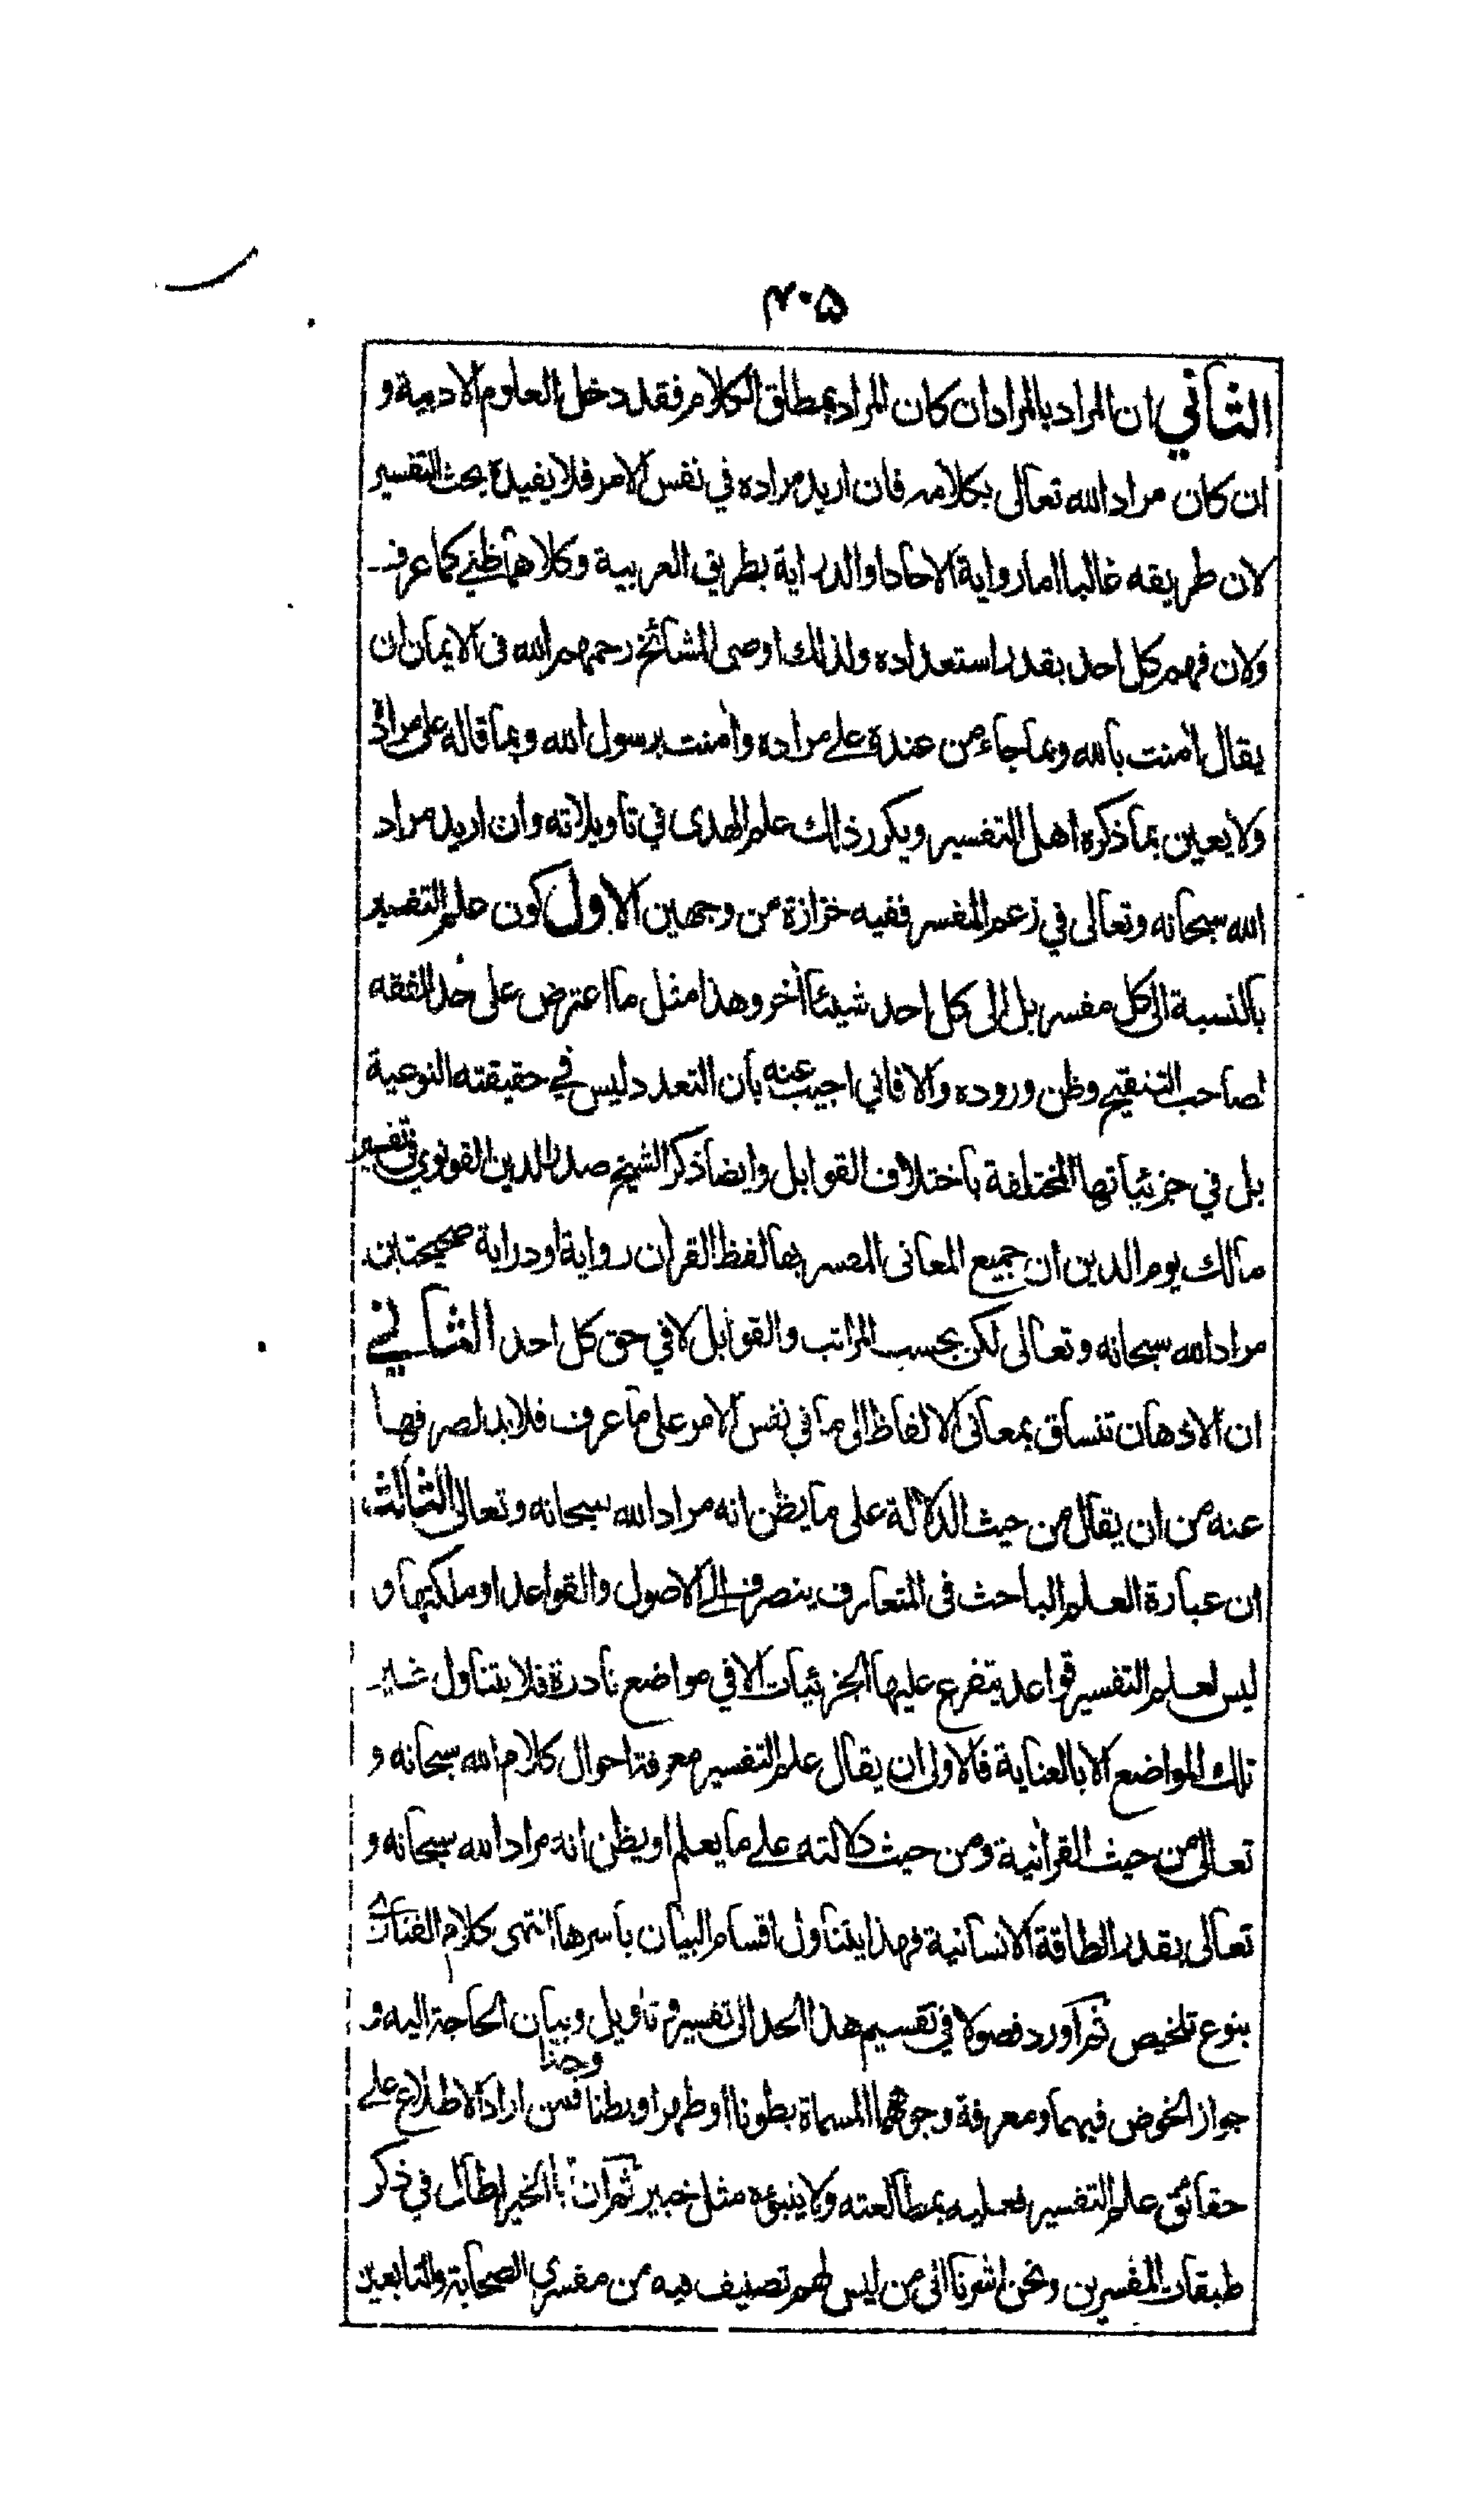 ٤٠٥
الثاني ان المراد بالمراد ان كان المراد بمطلق الكلام فقد دخل العلوم الادبية و
ان كان مراد الله تعالى بكلامه فان اريد مراده في نفس الامر فلا يفيده بحث التفسير
لان طريقه غالبا اما رواية الاحاد او الدراية بطريق العربية وكلاهما ظني كما عرف
ولان فهم كل احد بقدر استعداده ولذلك اوصى المشائخ رحمهم الله في الايمان ان
يقال اٰمنت بالله وبما جاء من عنده على مراده واٰمنت برسول الله وبما قاله على مراده
ولا يعين بما ذكره اهل التفسير ويكرر ذلك علم الهدى في تاويلاته وان اريد مراد
الله سبحانه وتعالى في زعم المفسر ففيه خزازة من وجهين الاول كون علم التفسير
بالنسبة الى كل مفسر بل الى كل احد شيئا اٰخر وهذا مثل ما اعترض على حد الفقه
لصاحب التنقيح وظن وروده والا فاني اجيب عنه بان التعدد ليس في حقيقته النوعية
بل في جزئياتها المختلفة باختلاف القوابل وايضا ذكر الشيخ صدر الدين القونوي في تفسير
مالك يوم الدين ان جميع المعاني المفسر بها لفظ القراٰن رواية او دراية صحيحتين
مراد الله سبحانه وتعالى لكن بحسب المراتب والقوابل لا في حق كل احد الثاني
ان الاذهان تنساق بمعاني الالفاظ الى ما في نفس الامر على ما عرف فلا بد لصرفها
عنه من ان يقال من حيث الدلالة على ما يظن انه مراد الله سبحانه وتعالى الثالث
ان عبارة العلم الباحث في المتعارف ينصرف الى الاصول والقواعد او ملكتها و
ليس لعلم التفسير قواعد يتفرع عليها الجزئيات الا في مواضع نادرة فلا يتناول غير
تلك المواضع الا بالعناية فالاولى ان يقال علم التفسير معرفة احوال كلام الله سبحانه و
تعالى من حيث القراٰنية ومن حيث دلالته على ما يعلم او يظن انه مراد الله سبحانه و
تعالى بقدر الطاقة الانسانية فهذا يتناول اقسام البيان باسرها انتهى كلام الفناري
بنوع تلخيص ثم اورد فصولا في تقسيم هذا الحد الى تفسير وتاويل وبيان الحاجة اليه و
جواز الخوض فيهما ومعرفة وجوههما المسماة بطونا او ظهرا وبطنا وحدا فمن اراد الاطلاع على
حقائق علم التفسير فعليه بمطالعته ولا ينبؤه مثل خبير ثم ان ابا الخير اطال في ذكر
طبقات المفسرين ونحن اشرنا الى من ليس لهم تصنيف فيه من مفسري الصحابة والتابعين